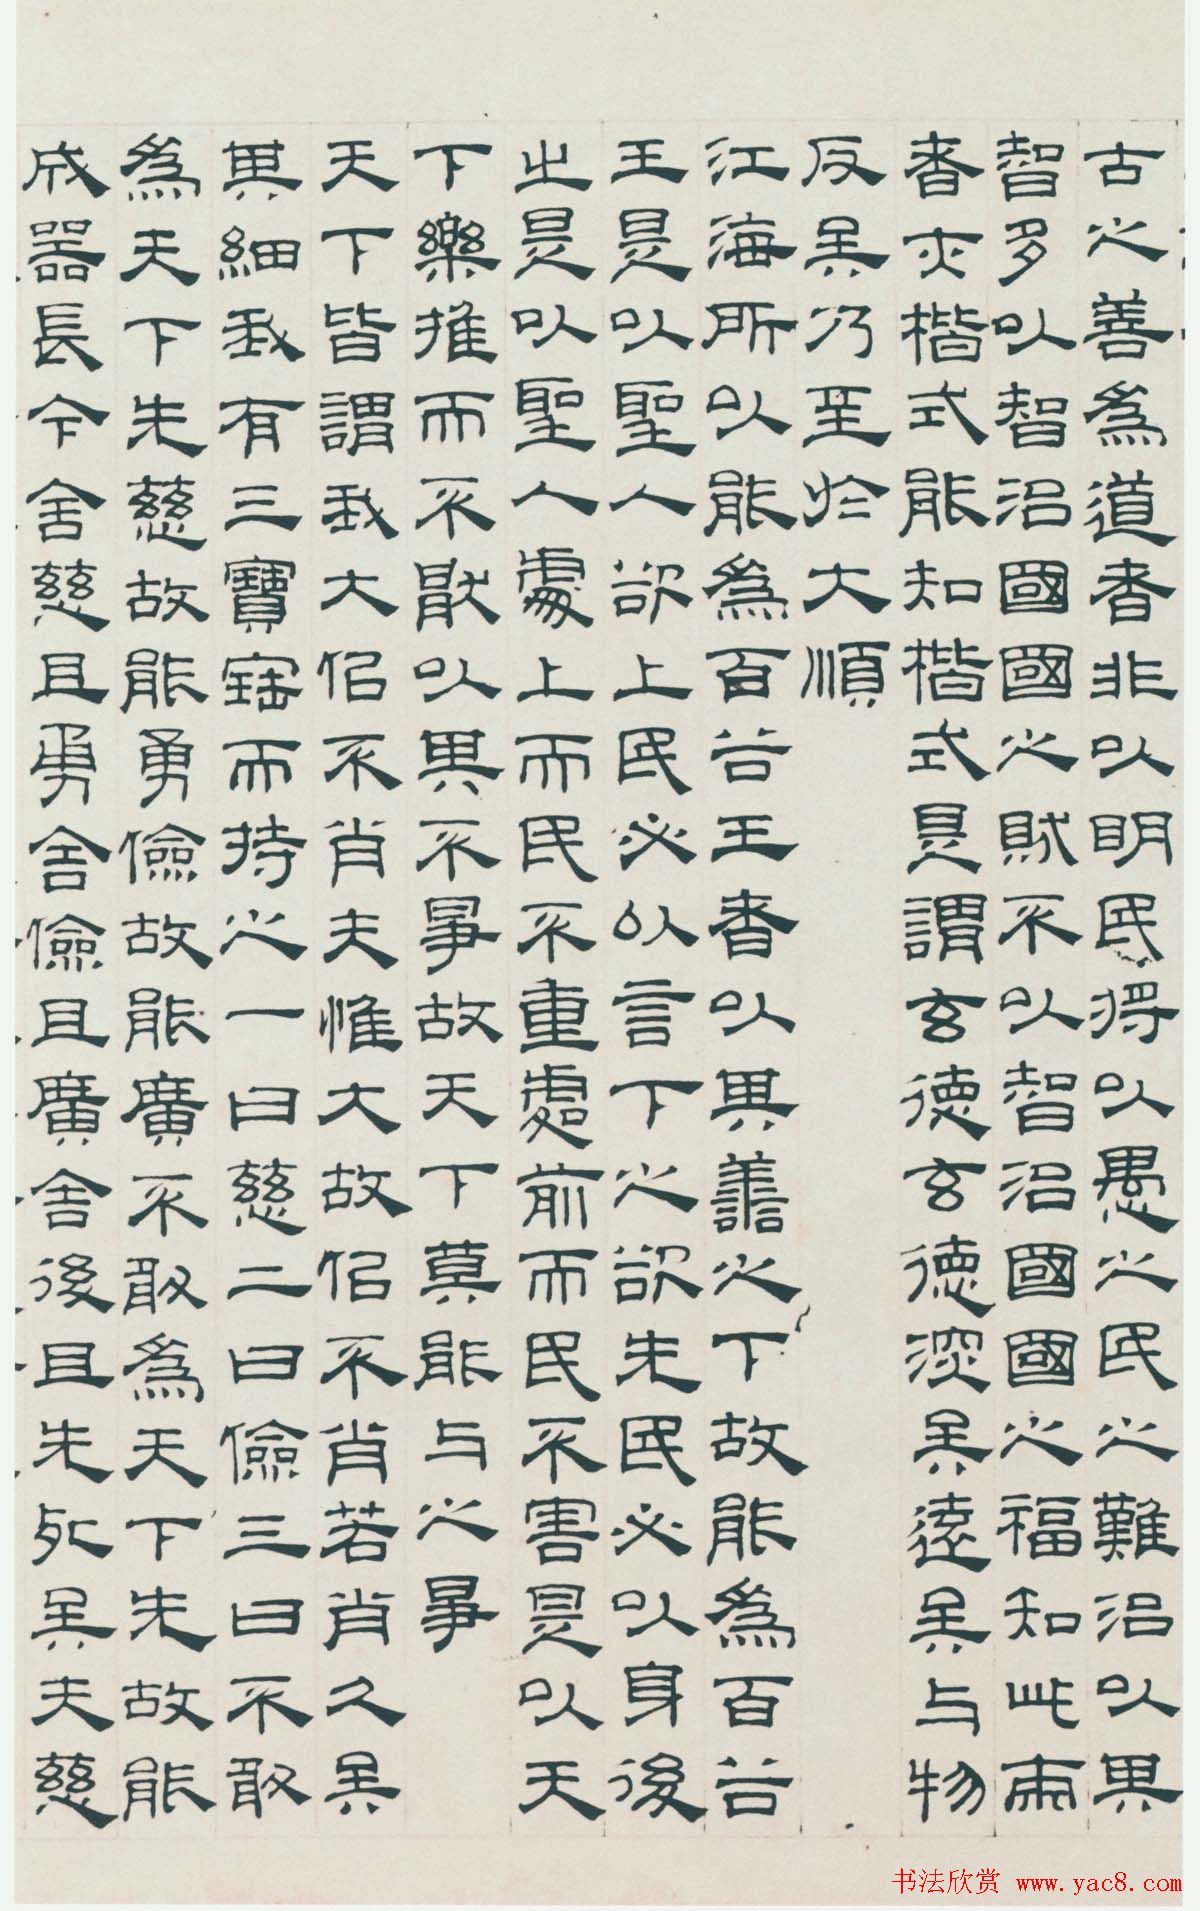 古之善爲道者非以明民將以愚之民之難治以其
智多以智治國國之賊不以智治國國之福知此兩
者亦楷式能知楷式是謂玄德玄德深矣遠矣与物
反矣乃至於大順
江海所以能爲百谷王者以其善之下故能爲百谷
王是以聖人欲上民必以言下之欲先民必以身後
之是以聖人處上而民不重處前而民不害是以天
下樂推而不厭以其不爭故天下莫能与之爭
天下皆謂我大似不肖夫惟大故似不肖若肖久矣
其細我有三寶寶而持之一曰慈二曰儉三曰不敢
爲天下先慈故能勇儉故能廣不敢爲天下先故能
成器長今舍慈且勇舍儉且廣舍後且先死矣夫慈
书法欣赏 www.yac8.com